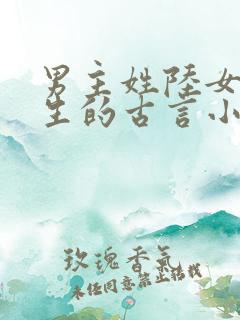 男主姓陸女
生的古言小
玫瑰香氣
未经同意禁止转载